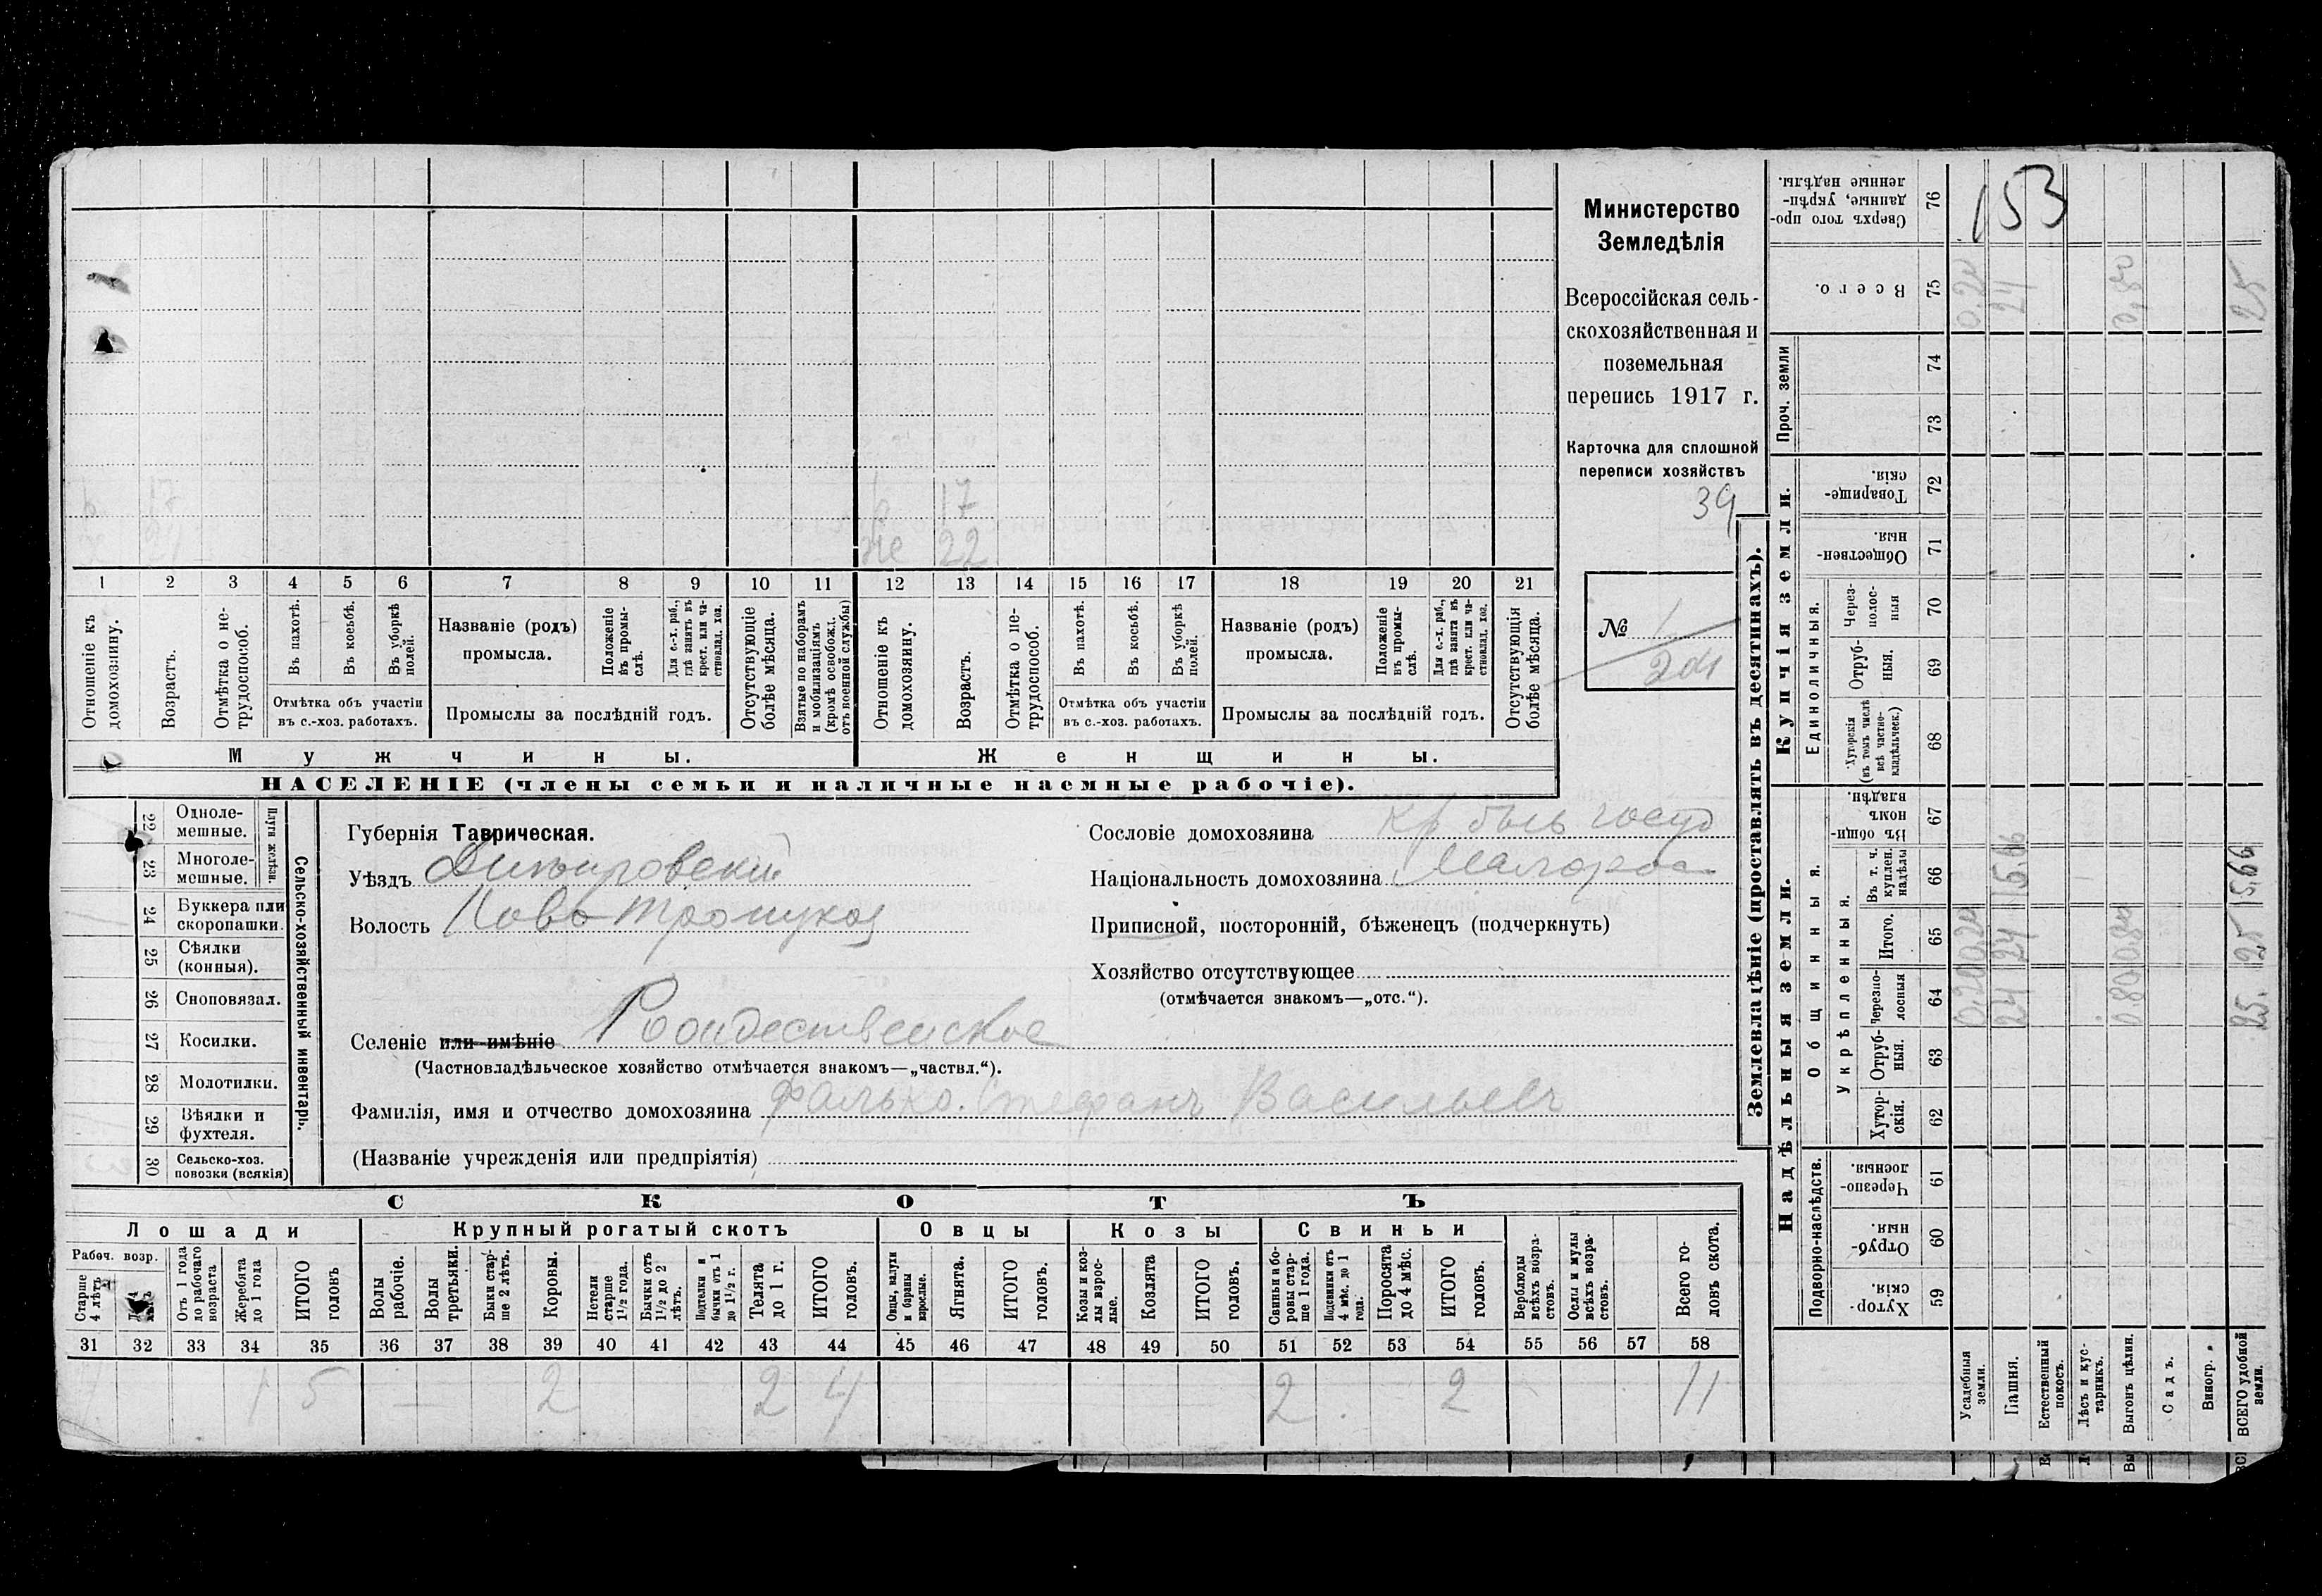 Министерство
Земледѣлія
Всероссійская сель-
скохозяйственная и
поземельная
перепись 1917 г.
Карточка для сплошной
переписи хозяйствъ
39
№ 1
204
153
17
17
22
1 2 3 4 5 6 7 8 9 10 11 12 13 14 15 16 17 18 19 20 21
Отношеніе къ домохозяину.
Возрастъ.
Отмѣтка о не-трудоспособ.
Въ пахотѣ.
Въ косьбѣ.
Въ уборкѣ полей.
Отмѣтка объ участіи
въ с.-хоз. работахъ.
Названіе (родъ)
промысла.
Положеніе въ промы-слѣ.
Для с.-х. раб., гдѣ занятъ въ крест. или ча-стновлад. хоз.
Промыслы за послѣдній годъ.
Отсутствующіе болѣе мѣсяца.
Взятые по наборамъ и мобилизаціямъ (кромѣ освобожд. отъ военной службы)
Отношеніе къ домохозяину.
Возрастъ.
Отмѣтка о не-трудоспособ.
Въ пахотѣ.
Въ косьбѣ.
Въ уборкѣ полей.
Отмѣтка объ участіи
въ с.-хоз. работахъ.
Названіе (родъ)
промысла.
Положеніе въ промы-слѣ.
Для с.-х. раб., гдѣ занята въ крест. или ча-стновлад. хоз.
Промыслы за послѣдній годъ.
Отсутствующія болѣе мѣсяца.
Мужчины.
Женщины.
НАСЕЛЕНІЕ (члены семьи и наличные наемные рабочіе).
Сельско-хозяйственный инвентарь.
Плуги желѣзн.
22 Одноле-мешные.
23 Многоле-мешные.
24 Буккера или скоропашки.
25 Сѣялки (конныя).
26 Сноповязал.
27 Косилки.
28 Молотилки.
29 Вѣялки и фухтеля.
30 Сельско-хоз. повозки (всякія)
Губернія Таврическая.
Уѣздъ Днѣпровскій
Волость Ново Троицкая
Селеніе или имѣніе Рождественское
(Частновладѣльческое хозяйство отмѣчается знакомъ—„частвл.“).
Фамилія, имя и отчество домохозяина Фалько. Стефанъ Васильевъ
(Названіе учрежденія или предпріятія)
Сословіе домохозяина кр бывъ госуд
Національность домохозяина Малорос
Приписной, посторонній, бѣженецъ (подчеркнуть)
Хозяйство отсутствующее
(отмѣчается знакомъ—„отс.“).
СКОТЪ
Лошади
Крупный рогатый скотъ
Овцы
Козы
Свиньи
Рабоч. возр.
Старше 4 лѣтъ
Отъ 1 года до рабочаго возраста
Жеребята до 1 года
ИТОГО головъ
Волы рабочіе.
Волы третьяки.
Быки стар-ше 2 лѣтъ.
Коровы.
Нетели старше 1 1/2 года.
Бычки отъ 1 1/2 до 2 лѣтъ.
Подтелки и бычки отъ 1 до 1 1/2 г.
Телята до 1 г.
ИТОГО головъ.
Овцы, валухи и бараны взрослые.
Ягнята.
ИТОГО головъ.
Козы и коз-лы взрос-лые.
Козлята
ИТОГО головъ.
Свиньи и бо-ровы стар-ше 1 года.
Подсвинки отъ 4 мѣс. до 1 года.
Поросята до 4 мѣс.
ИТОГО головъ.
Верблюды всѣхъ возра-стовъ.
Ослы и мулы всѣхъ возра-стовъ.
Всего го-ловъ скота.
31 32 33 34 35 36 37 38 39 40 41 42 43 44 45 46 47 48 49 50 51 52 53 54 55 56 57 58
1 5 2 2 4 2 2 11
Землевладѣніе (проставлять въ десятинахъ).
Надѣльныя земли.
Купчія земли.
Проч. земли
Подворно-наслѣдств.
Общинныя.
Укрѣпленныя.
Единоличныя.
Сверхъ того про-данные, укрѣп-ленные надѣлы. 76
Всего. 75
74
73
Товарище-скія. 72
Обществен-ныя. 71
Через-полос-ныя 70
Отруб-ныя. 69
Хуторскія (въ томъ числѣ всѣ частно-владѣльческ.) 68
Въ общин-номъ владѣн. 67
Въ т. ч. куплен. надѣлы 66
Итого. 65
Черезпо-лосныя 64
Отруб-ныя. 63
Хутор-скія. 62
Черезпо-лосныя. 61
Отруб-ныя. 60
Хутор-скія. 59
Усадебныя земли.
Пашня.
Естественный покосъ.
Лѣсъ и кус-тарникъ.
Выгонъ цѣлин.
Садъ.
Виногр.
ВСЕГО удобной земли.
0.20 0.20 0.20
24 24 15.66 24
0.80 0.80 0,80
25. 25 15.66 25